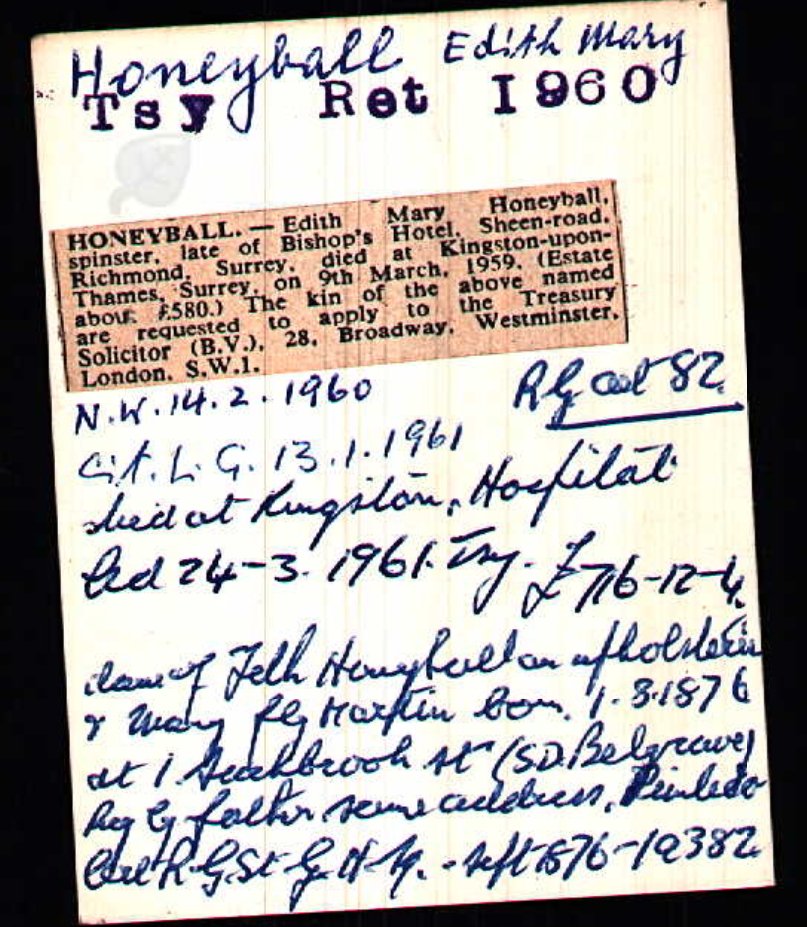 Honeyball Edith Mary
Tsy Ret 1960
HONEYBALL. — Edith Mary Honeyball,
spinster, late of Bishop's Hotel, Sheen-road,
Richmond, Surrey, died at Kingston-upon-
Thames, Surrey, on 9th March, 1959. (Estate
about £580.) The kin of the above named
are requested to apply to the Treasury
Solicitor (B.V.), 28, Broadway, Westminster,
London, S.W.1.
N.W. 14.2.1960
RG 82
L.G. 13.1.1961
died at Kingston, Hospital
24-3.1961. Tsy. £716-12-4.
Honeyball an upholsterer
& Mary Martin born. 1.3.1876
at 1. St (SD. Belgrave)
Reg by father same address, Pimlico
R.G. St. G. H. Sq. - Sept 1876-1a382